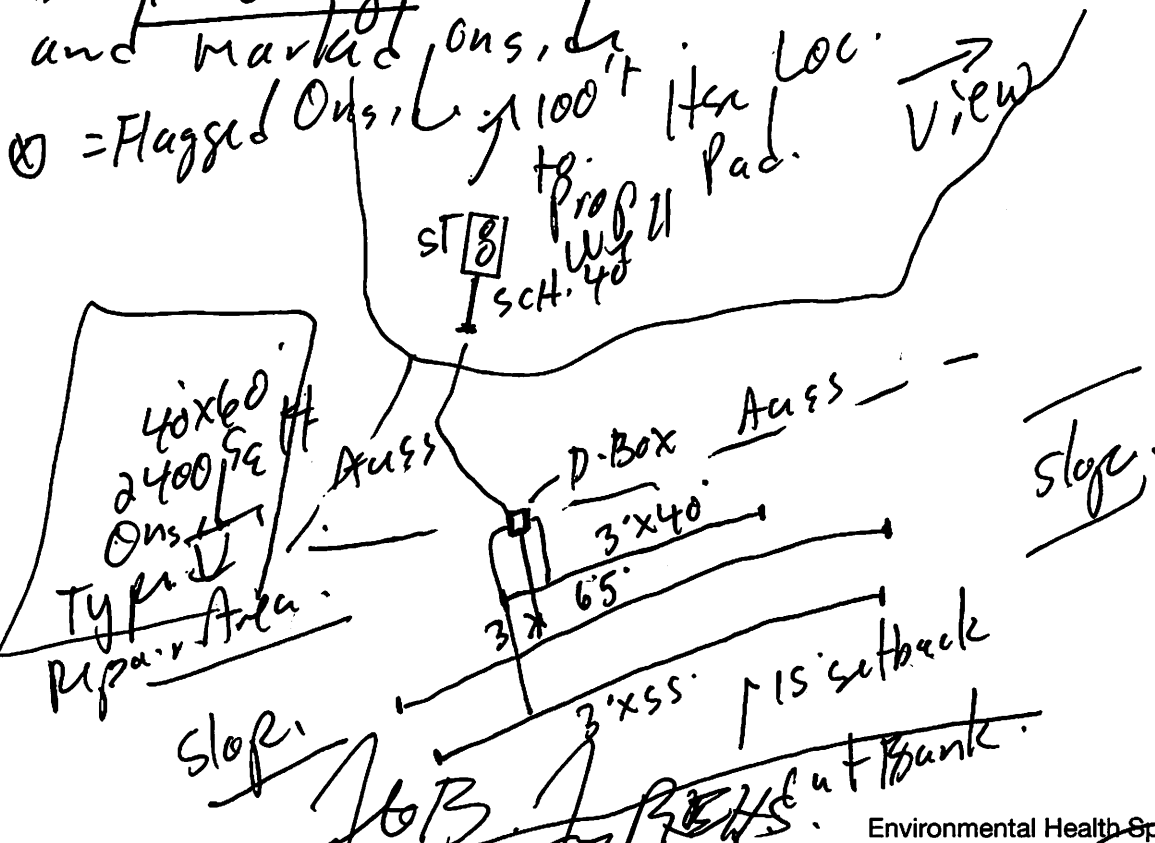 and marked Onsite
⊗ = Flagged Onsite
100'+
to
Prop
Well
Hse Loc.
Pad.
View
ST
SCH. 40
40x60
2400 sq ft
Onsite
Type IV
Repair Area.
Access
D-Box
Access
3'x40'
Slope.
65'
3'x
3'x55'
15' setback
Cut Bank.
Slope.
REHS.
Environmental Health Sp